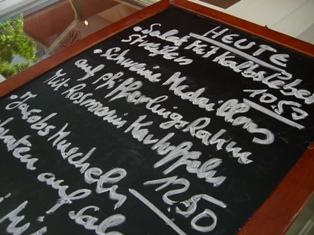 HEUTE
Salat mit Kalbsleber
Streifen 10.50
• Schweine Medaillons
auf Pfifferlings Rahm
Mit Rosmarin Kartoffeln
12.50
Jacobs Muscheln
auf Sal